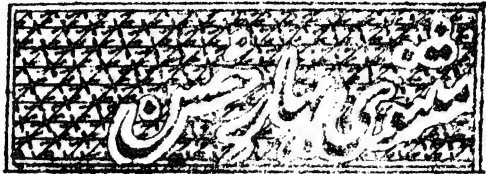 مثنوی بہار حسن